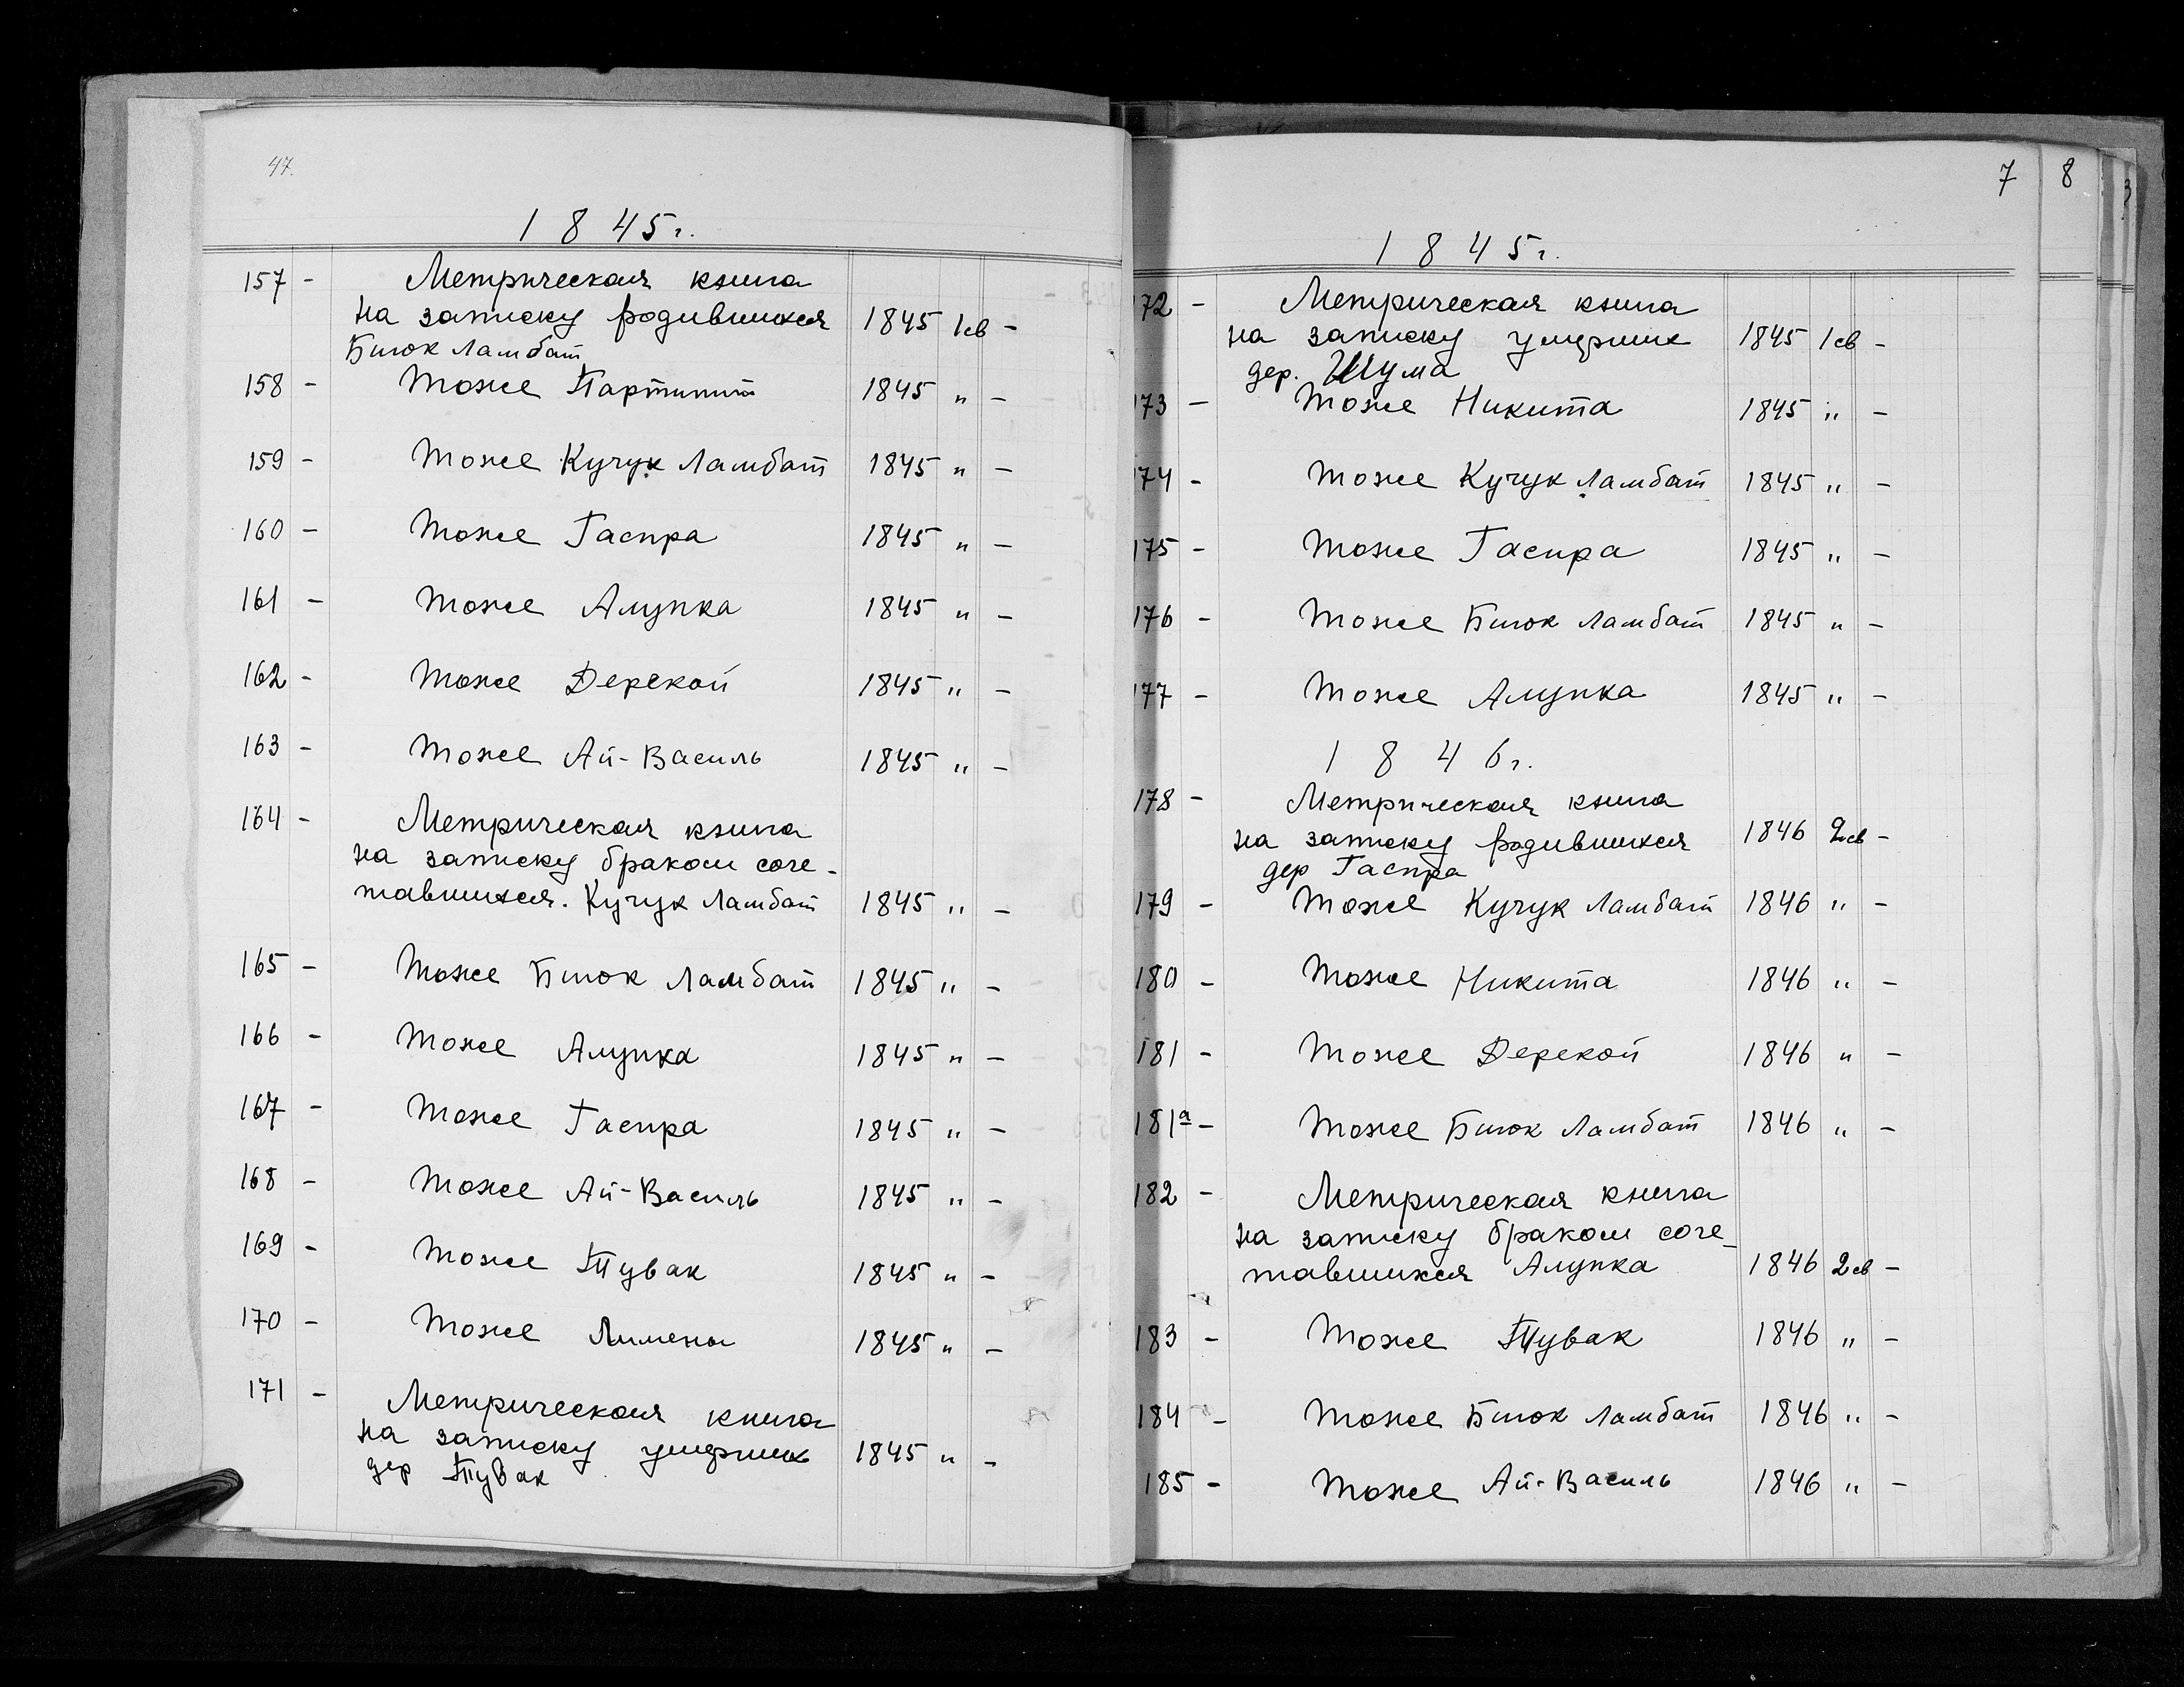 47.
1845г.
157 - Метрическая книга
на записку родившихся 1845 1св -
Биюк Ламбат
158 - Тоже Партинит 1845 " -
159 - Тоже Кучук Ламбат 1845 " -
160 - Тоже Гаспра 1845 " -
161 - Тоже Алупка 1845 " -
162 - Тоже Дерекой 1845 " -
163 - Тоже Ай-Василь 1845 " -
164 - Метрическая книга
на записку браком соче-
тавшихся. Кучук Ламбат 1845 " -
165 - Тоже Биюк Ламбат 1845 " -
166 - Тоже Алупка 1845 " -
167 - Тоже Гаспра 1845 " -
168 - Тоже Ай-Василь 1845 " -
169 - Тоже Тувак 1845 " -
170 - Тоже Лимены 1845 " -
171 - Метрическая книга
на записку умерших 1845 " -
дер Тувак
7
8
1845г.
172 - Метрическая книга
на записку умерших 1845 1св -
дер. Шума
173 - Тоже Никита 1845 " -
174 - Тоже Кучук Ламбат 1845 " -
175 - Тоже Гаспра 1845 " -
176 - Тоже Биюк Ламбат 1845 " -
177 - Тоже Алупка 1845 " -
1846г.
178 - Метрическая книга
на записку родившихся 1846 2св -
дер Гаспра
179 - Тоже Кучук Ламбат 1846 " -
180 - Тоже Никита 1846 " -
181 - Тоже Дерекой 1846 " -
181а - Тоже Биюк Ламбат 1846 " -
182 - Метрическая книга
на записку браком соче-
тавшихся Алупка 1846 2св -
183 - Тоже Тувак 1846 " -
184 - Тоже Биюк Ламбат 1846 " -
185 - Тоже Ай-Василь 1846 " -